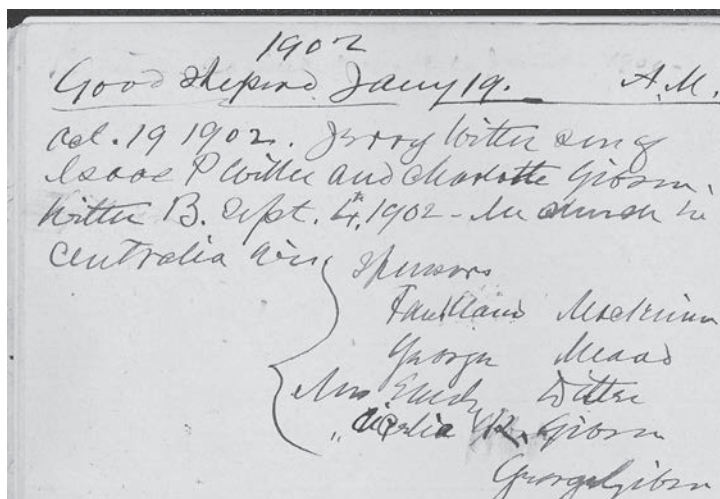 1902
Good Shepird Jany 19. A.M.
Oct. 19 1902. Jerry Witter son of
Isaac P Witter and Charlotte Gibson
Witter B. Sept. 4, 1902 - In church in
Centralia Wis
Sponsors
George Mead
Mrs Emily Witter
" R. Gibson
George Gibson